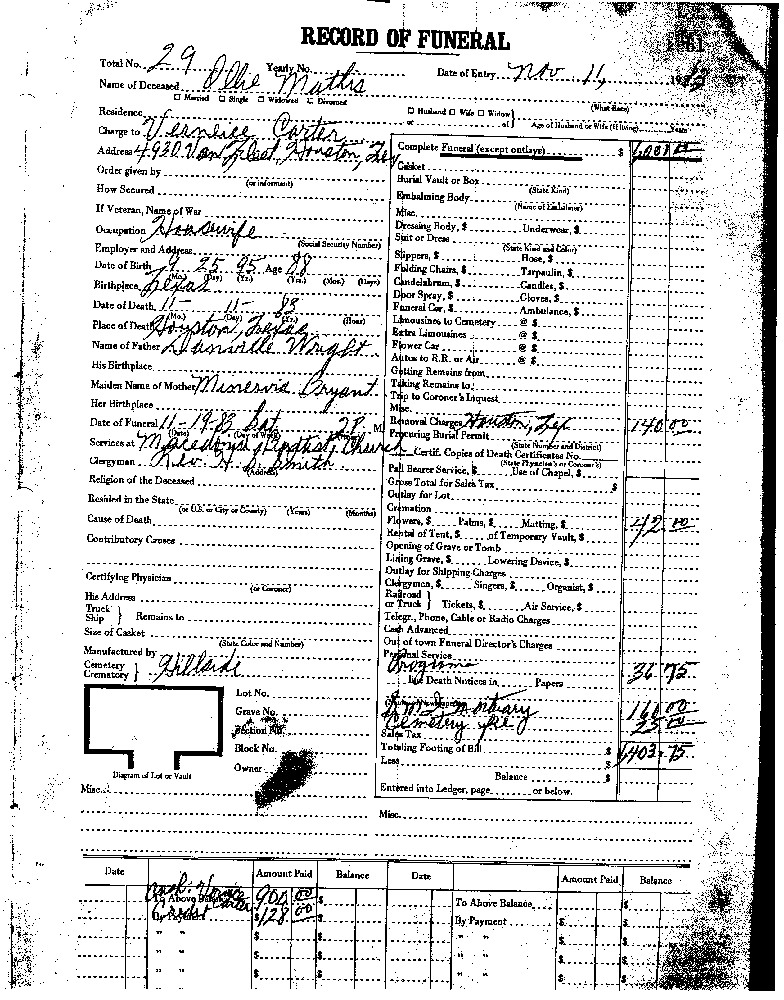 RECORD OF FUNERAL
Total No. 29 Yearly No. Date of Entry Nov 11, 19
Name of Deceased Ollie Mathis
☐ Married ☐ Single ☐ Widowed ☐ Divorced (What Race)
Residence ☐ Husband ☐ Wife ☐ Widow
or of Age of Husband or Wife (if living) Years
Charge to Carter
Address 4930 Van Zandt, Houston, Tex
Order given by (or informant)
How Secured
If Veteran, Name of War
Occupation Housewife
(Social Security Number)
Employer and Address
Date of Birth 9 25 95 Age 88
(Mo.) (Day) (Yr.) (Yrs.) (Mos.) (Days)
Birthplace Texas
Date of Death 11- 11- 83
(Mo.) (Day) (Yr.) (Hour)
Place of Death Houston, Texas
Name of Father Danville Wright
His Birthplace
Maiden Name of Mother Minervia Bryant
Her Birthplace
Date of Funeral 11-19-83 Sat 2P M.
(Date) (Day of Week)
Services at Macedonia Baptist Church
Clergyman Rev. Smith
(Address)
Religion of the Deceased
Resided in the State
(or U.S. or City or County) (Years) (Months)
Cause of Death
Contributory Causes
Certifying Physician
(or Coroner)
His Address
Truck
Ship } Remains to
Size of Casket
(State Color and Number)
Manufactured by
Cemetery
Crematory } Hillside
Lot No.
Grave No.
Section No.
Block No.
Owner
Diagram of Lot or Vault
Complete Funeral (except outlays) $ 1,001 00
Casket
Burial Vault or Box
(State Kind)
Embalming Body
(Name of Embalmer)
Misc.
Dressing Body, $ Underwear, $
Suit or Dress
(State Kind and Color)
Slippers, $ Hose, $
Folding Chairs, $ Tarpaulin, $
Candelabrum, $ Candles, $
Door Spray, $ Gloves, $
Funeral Car, $ Ambulance, $
Limousines to Cemetery @ $
Extra Limousines @ $
Flower Car @ $
Autos to R.R. or Air @ $
Getting Remains from
Taking Remains to
Trip to Coroner's Inquest
Misc.
Removal Charges Houston, Tex 140 00
Procuring Burial Permit
(State Number and District)
Certif. Copies of Death Certificates No.
(State Physician's or Coroner's)
Pall Bearer Service, $ Use of Chapel, $
Gross Total for Sales Tax $
Outlay for Lot
Cremation
Flowers, $ Palms, $ Matting, $ 42 00
Rental of Tent, $ of Temporary Vault, $
Opening of Grave or Tomb
Lining Grave, $ Lowering Device, $
Outlay for Shipping Charges
Clergymen, $ Singers, $ Organist, $
Railroad
or Truck } Tickets, $ Air Service, $
Telegr., Phone, Cable or Radio Charges
Cash Advanced
Out of town Funeral Director's Charges
Personal Service
Programs 36 75
Death Notices in Papers
Mortuary 160 00
Cemetery fee 25 00
Sales Tax
Totaling Footing of Bill $ 1,403 75
Less $
Balance $
Entered into Ledger, page or below.
Misc. Misc.
Date Amount Paid Balance Date Amount Paid Balance
To Above Balance 900 00 $ To Above Balance $ $
By Payment $128 00 $ By Payment $ $
" " $ $ " " $ $
" " $ $ " " $ $
" " $ $ " " $ $